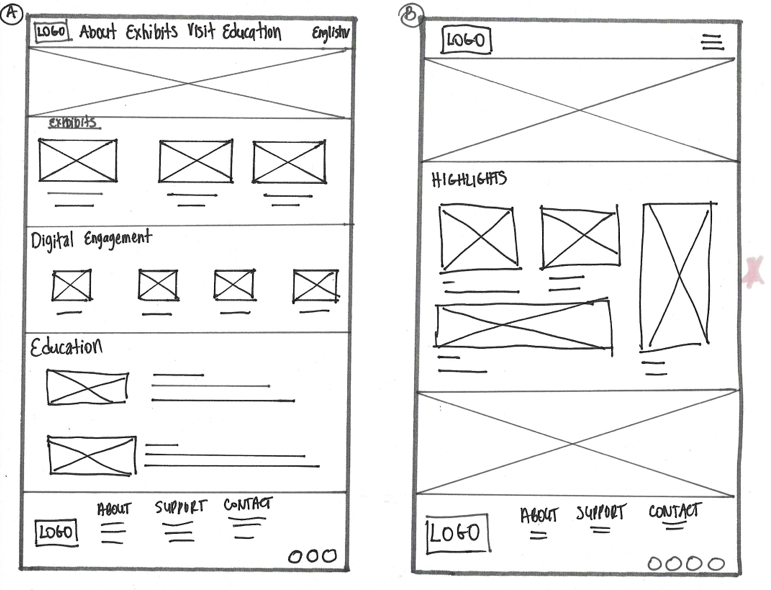 A
LOGO About Exhibits Visit Education English
exhibits
Digital Engagement
Education
ABOUT SUPPORT CONTACT
LOGO
B
LOGO
HIGHLIGHTS
ABOUT SUPPORT CONTACT
LOGO